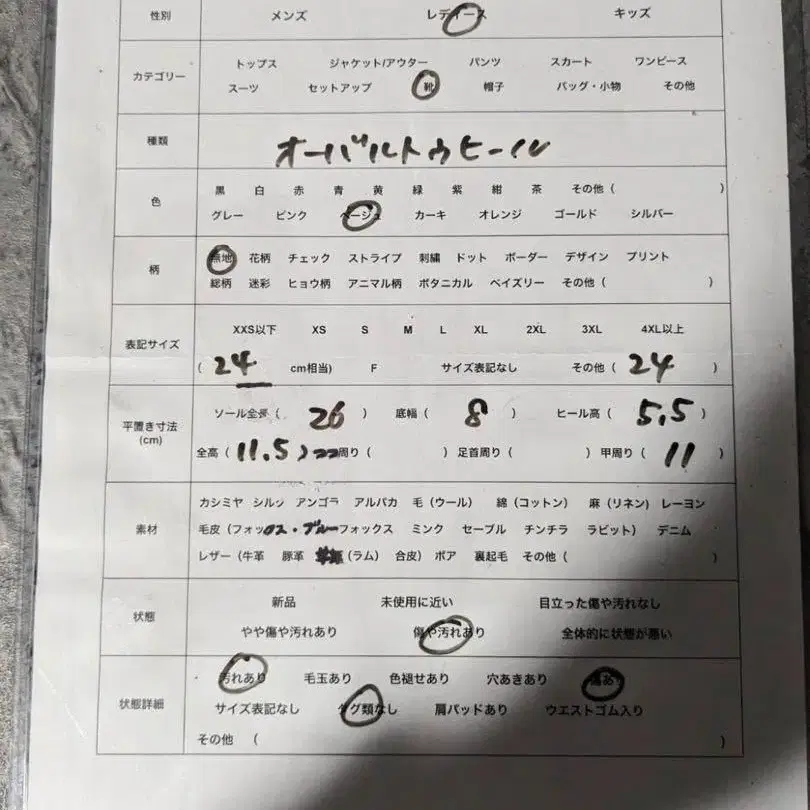 性別 メンズ レディース キッズ
カテゴリー トップス ジャケット/アウター パンツ スカート ワンピース
スーツ セットアップ 靴 帽子 バッグ・小物 その他
種類 オーバルトゥヒール
色 黒 白 赤 青 黄 緑 紫 紺 茶 その他 ( )
グレー ピンク ベージュ カーキ オレンジ ゴールド シルバー
柄 無地 花柄 チェック ストライプ 刺繍 ドット ボーダー デザイン プリント
総柄 迷彩 ヒョウ柄 アニマル柄 ボタニカル ペイズリー その他 ( )
表記サイズ XXS以下 XS S M L XL 2XL 3XL 4XL以上
( 24 cm相当) F サイズ表記なし その他 ( 24 )
平置き寸法 (cm) ソール全長 ( 26 ) 底幅 ( 8 ) ヒール高 ( 5.5 )
全高 ( 11.5 ) 周り ( ) 足首周り ( ) 甲周り ( 11 )
素材 カシミヤ シルク アンゴラ アルパカ 毛 (ウール) 綿 (コットン) 麻 (リネン) レーヨン
毛皮 (フォックス・ブルーフォックス ミンク セーブル チンチラ ラビット) デニム
レザー (牛革 豚革 (ラム) 合皮) ボア 裏起毛 その他 ( )
状態 新品 未使用に近い 目立った傷や汚れなし
やや傷や汚れあり 傷や汚れあり 全体的に状態が悪い
状態詳細 汚れあり 毛玉あり 色褪せあり 穴あきあり 傷あり
サイズ表記なし タグ類なし 肩パッドあり ウエストゴム入り
その他 ( )